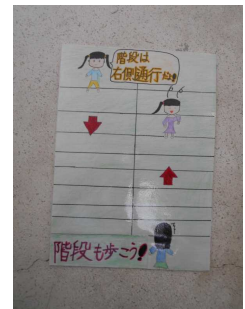 階段は
右側通行ね!
階段も歩こう!